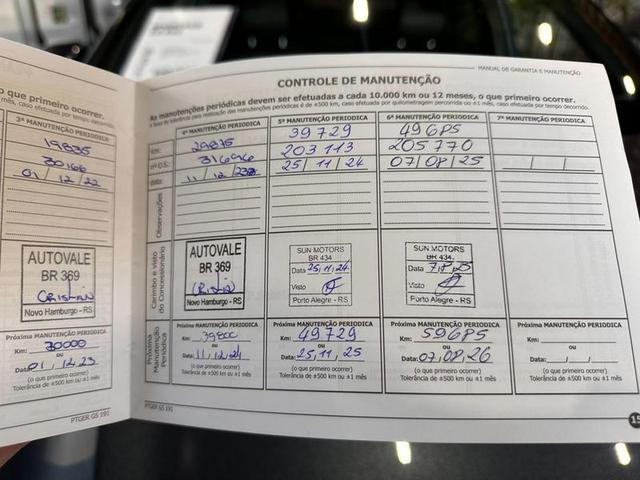 MANUAL DE GARANTIA E MANUTENÇÃO
CONTROLE DE MANUTENÇÃO
As manutenções periódicas devem ser efetuadas a cada 10.000 km ou 12 meses, o que primeiro ocorrer.
A faixa de tolerância para realização das manutenções periódicas é de ±500 km, caso efetuada por quilometragem percorrida ou ±1 mês, caso efetuada por tempo decorrido.
o que primeiro ocorrer.
mês, caso efetuada por tempo decorrido.
3ª MANUTENÇÃO PERIODICA
19835
30166
01/12/22
AUTOVALE
BR 369
Novo Hamburgo - RS
Próxima MANUTENÇÃO PERIODICA
Km: 30000
ou
Data: 01/12/23
(o que primeiro ocorrer)
Tolerância de ±500 km ou ±1 mês
PTGER GS 191
Km:
nº O.S.:
data:
Observações
Carimbo e visto do Concessionário
Próxima Manutenção Periódica
4ª MANUTENÇÃO PERIODICA
29835
31/12/
AUTOVALE
BR 369
Novo Hamburgo - RS
Próxima MANUTENÇÃO PERIODICA
Km: 39800
ou
Data: 11/12/24
(o que primeiro ocorrer)
Tolerância de ±500 km ou ±1 mês
5ª MANUTENÇÃO PERIODICA
39729
203113
25/11/24
SUN MOTORS
BR 434
Data 25,11,24
Visto
Porto Alegre - RS
Próxima MANUTENÇÃO PERIODICA
Km: 49729
ou
Data: 25,11,25
(o que primeiro ocorrer)
Tolerância de ±500 km ou ±1 mês
6ª MANUTENÇÃO PERIODICA
49685
205770
07/08/25
SUN MOTORS
BR 434
Data
Visto
Porto Alegre - RS
Próxima MANUTENÇÃO PERIODICA
Km: 59685
ou
Data: 07,08,26
(o que primeiro ocorrer)
Tolerância de ±500 km ou ±1 mês
7ª MANUTENÇÃO PERIODICA
Próxima MANUTENÇÃO PERIODICA
Km:
ou
Data: / /
(o que primeiro ocorrer)
Tolerância de ±500 km ou ±1 mês
PTGER GS 191